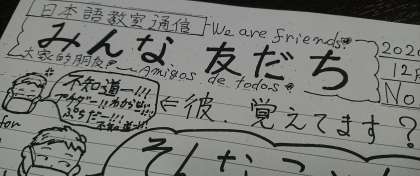 日本語教室通信
We are friends.
みんな友だち
大家的朋友
Amigos de todos
202
12
No
不知道ー!!!
アカダー!!わからせ!!!
ぶらだー!!!
不知道ー!!
←彼、覚えてます？
for
そんな